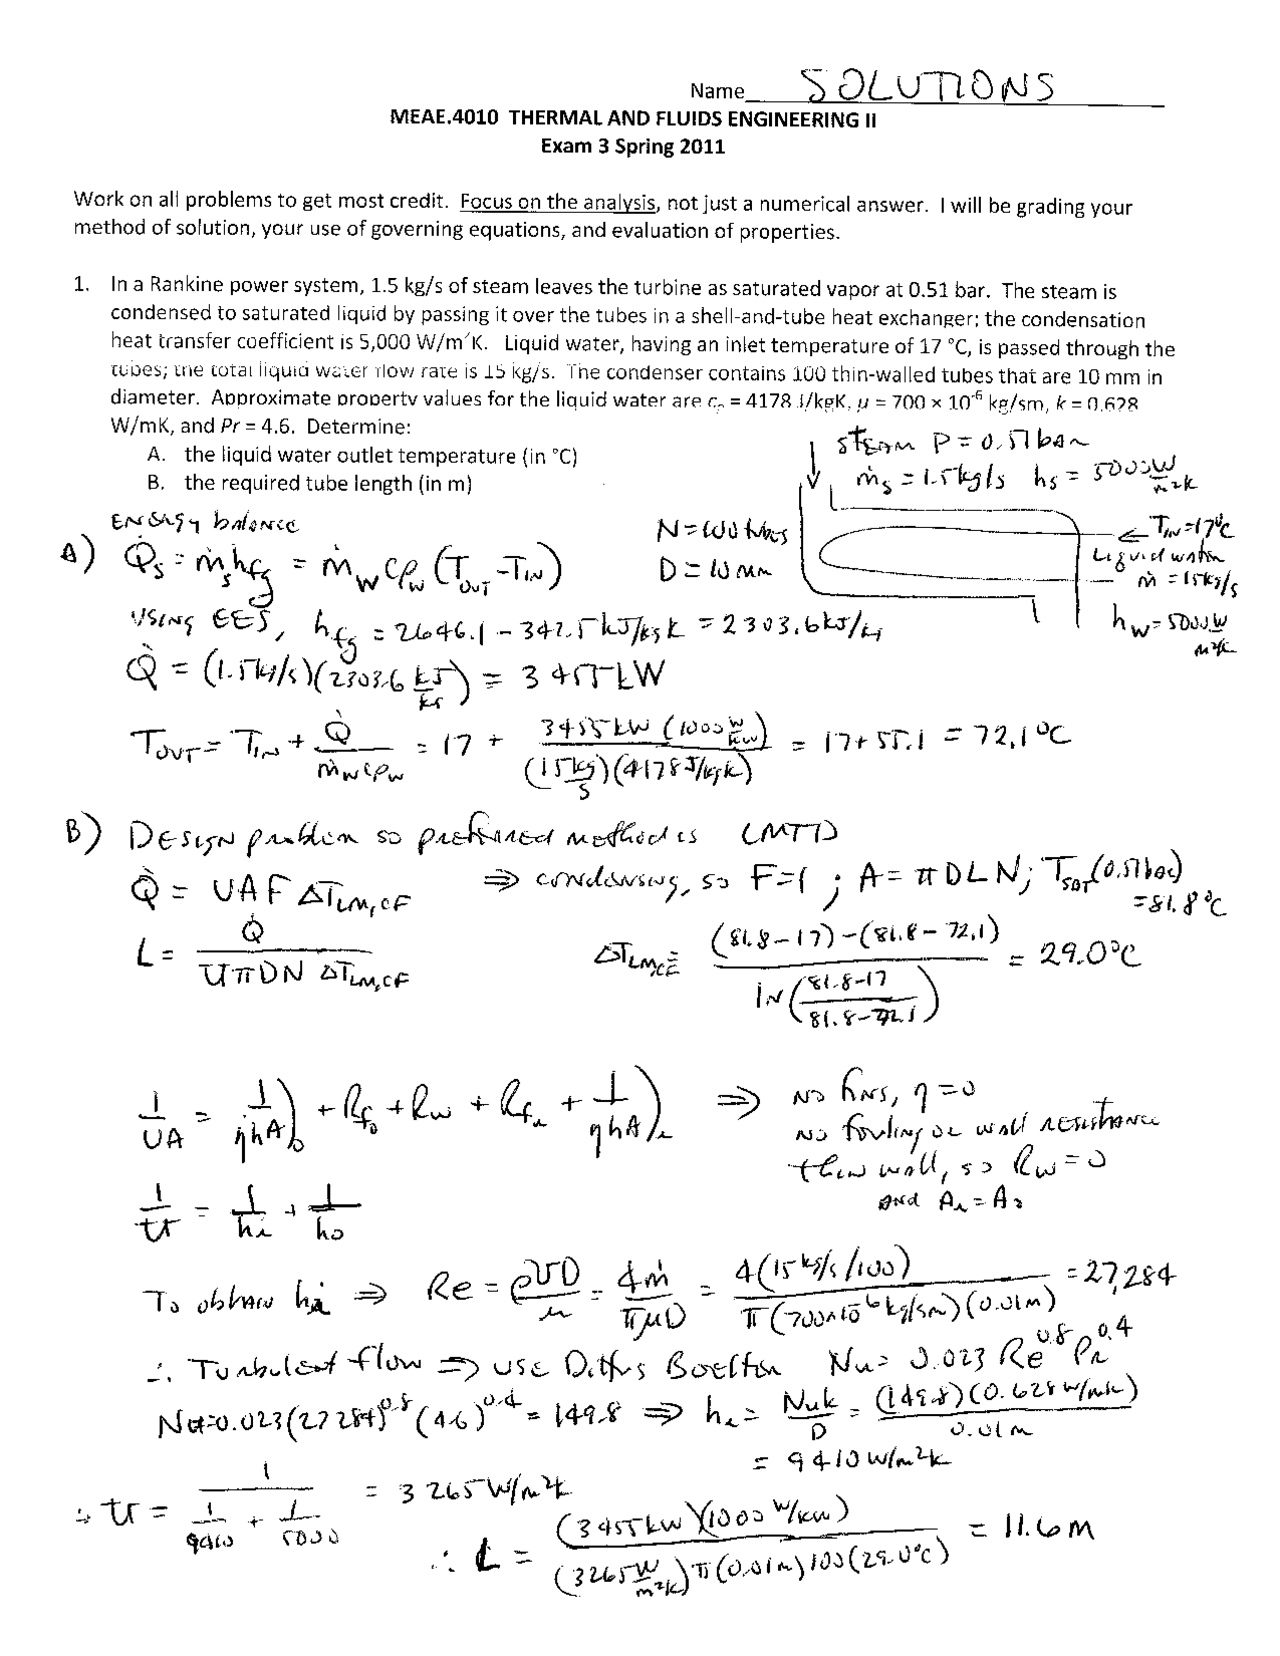 Name SOLUTIONS
MEAE.4010 THERMAL AND FLUIDS ENGINEERING II
Exam 3 Spring 2011
Work on all problems to get most credit. Focus on the analysis, not just a numerical answer. I will be grading your
method of solution, your use of governing equations, and evaluation of properties.
1. In a Rankine power system, 1.5 kg/s of steam leaves the turbine as saturated vapor at 0.51 bar. The steam is
condensed to saturated liquid by passing it over the tubes in a shell-and-tube heat exchanger; the condensation
heat transfer coefficient is 5,000 W/m²K. Liquid water, having an inlet temperature of 17 °C, is passed through the
tubes; the total liquid water flow rate is 15 kg/s. The condenser contains 100 thin-walled tubes that are 10 mm in
diameter. Approximate property values for the liquid water are cₚ = 4178 J/kgK, μ = 700 × 10⁻⁶ kg/sm, k = 0.628
W/mK, and Pr = 4.6. Determine:
A. the liquid water outlet temperature (in °C)
B. the required tube length (in m)
STEAM P = 0.51 bar
ṁs = 1.5 kg/s hs = 5000 W/m²K
TIN = 17°C
Liquid water
ṁ = 15 kg/s
hw = 5000 W/m²K
N = 100 tubes
D = 10 mm
ENERGY balance
A) Q̇s = ṁs hfg = ṁw cpw (TOUT - TIN)
USING EES, hfg = 2646.1 - 342.5 kJ/kgK = 2303.6 kJ/kg
Q̇ = (1.5 kg/s)(2303.6 kJ/kg) = 3455 kW
TOUT = TIN + Q̇/(ṁw cpw) = 17 + 3455 kW (1000 W/kW)/((15 kg/s)(4178 J/kgK)) = 17 + 55.1 = 72.1°C
B) DESIGN problem so preferred method is LMTD
Q̇ = UAF ΔTLM,CF ⇒ condensing, so F=1 ; A = πDLN; TSAT(0.51 bar) = 81.8°C
L = Q̇/(UπDN ΔTLM,CF) ΔTLM,CF = ((81.8-17)-(81.8-72.1))/(ln((81.8-17)/(81.8-72.1))) = 29.0°C
1/UA = 1/ηhA)o + Rfo + Rw + Rfi + 1/ηhA)i ⇒ no fins, η=0
no fouling or wall resistance
thin wall, so Rw = 0
and Ai = Ao
1/U = 1/hi + 1/ho
To obtain hi ⇒ Re = ρVD/μ = 4ṁ/πμD = 4(15 kg/s/100)/(π(700×10⁻⁶ kg/sm)(0.01m)) = 27,284
∴ Turbulent flow ⇒ use Dittus Boelter Nu = 0.023 Re^0.8 Pr^0.4
Nu = 0.023(27284)^0.8 (4.6)^0.4 = 149.8 ⇒ hi = Nuk/D = (149.8)(0.628 W/mK)/0.01m
= 9410 W/m²K
∴ U = 1/(1/9410 + 1/5000) = 3265 W/m²K
∴ L = (3455 kW)(1000 W/kW)/((3265 W/m²K)π(0.01m)100(29.0°C)) = 11.6 m